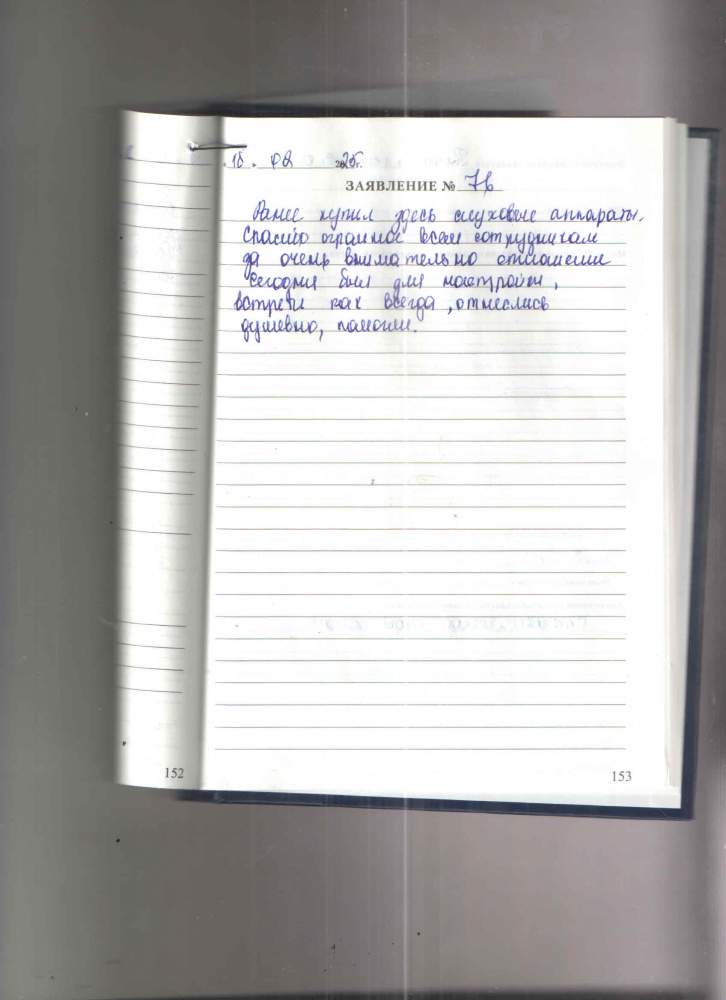 18. 02 2025г.
ЗАЯВЛЕНИЕ № 76
Ранее купил здесь слуховые аппараты.
Спасибо огромное всем сотрудникам
за очень внимательно отношении
Сегодня был для настройки,
встрети как всегда, отнеслись
душевно, помогли.
152
153